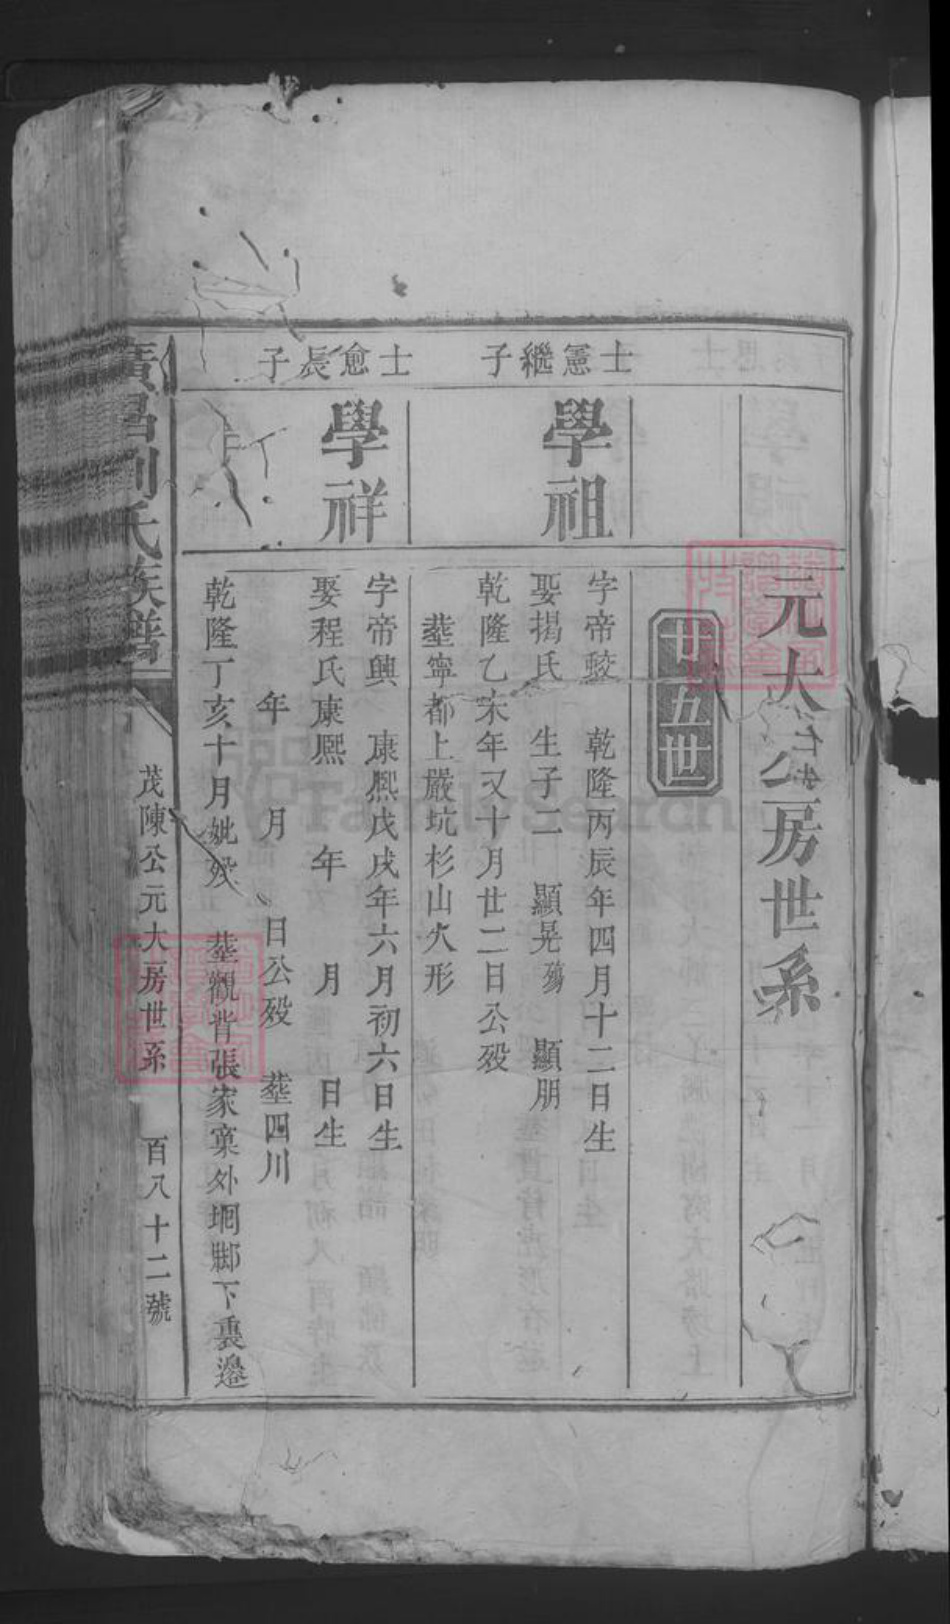 元大公房世系
廿五世
士憲繼子
學祖
字帝蛟 乾隆丙辰年四月十二日生
娶揭氏 生子二 顯晃殤 顯朋
乾隆乙未年又十月廿二日公歿
塟寧都上嚴坑杉山火形
士愈長子
學祥
字帝興 康熙戊戌年六月初六日生
娶程氏康熙 年 月 日生
年 月 日公歿 塟四川
乾隆丁亥十月妣歿 塟觀背張家窠外垇腳下裏邊
廣昌劉氏族譜
茂陳公元大房世系 百八十二號
FamilySearch